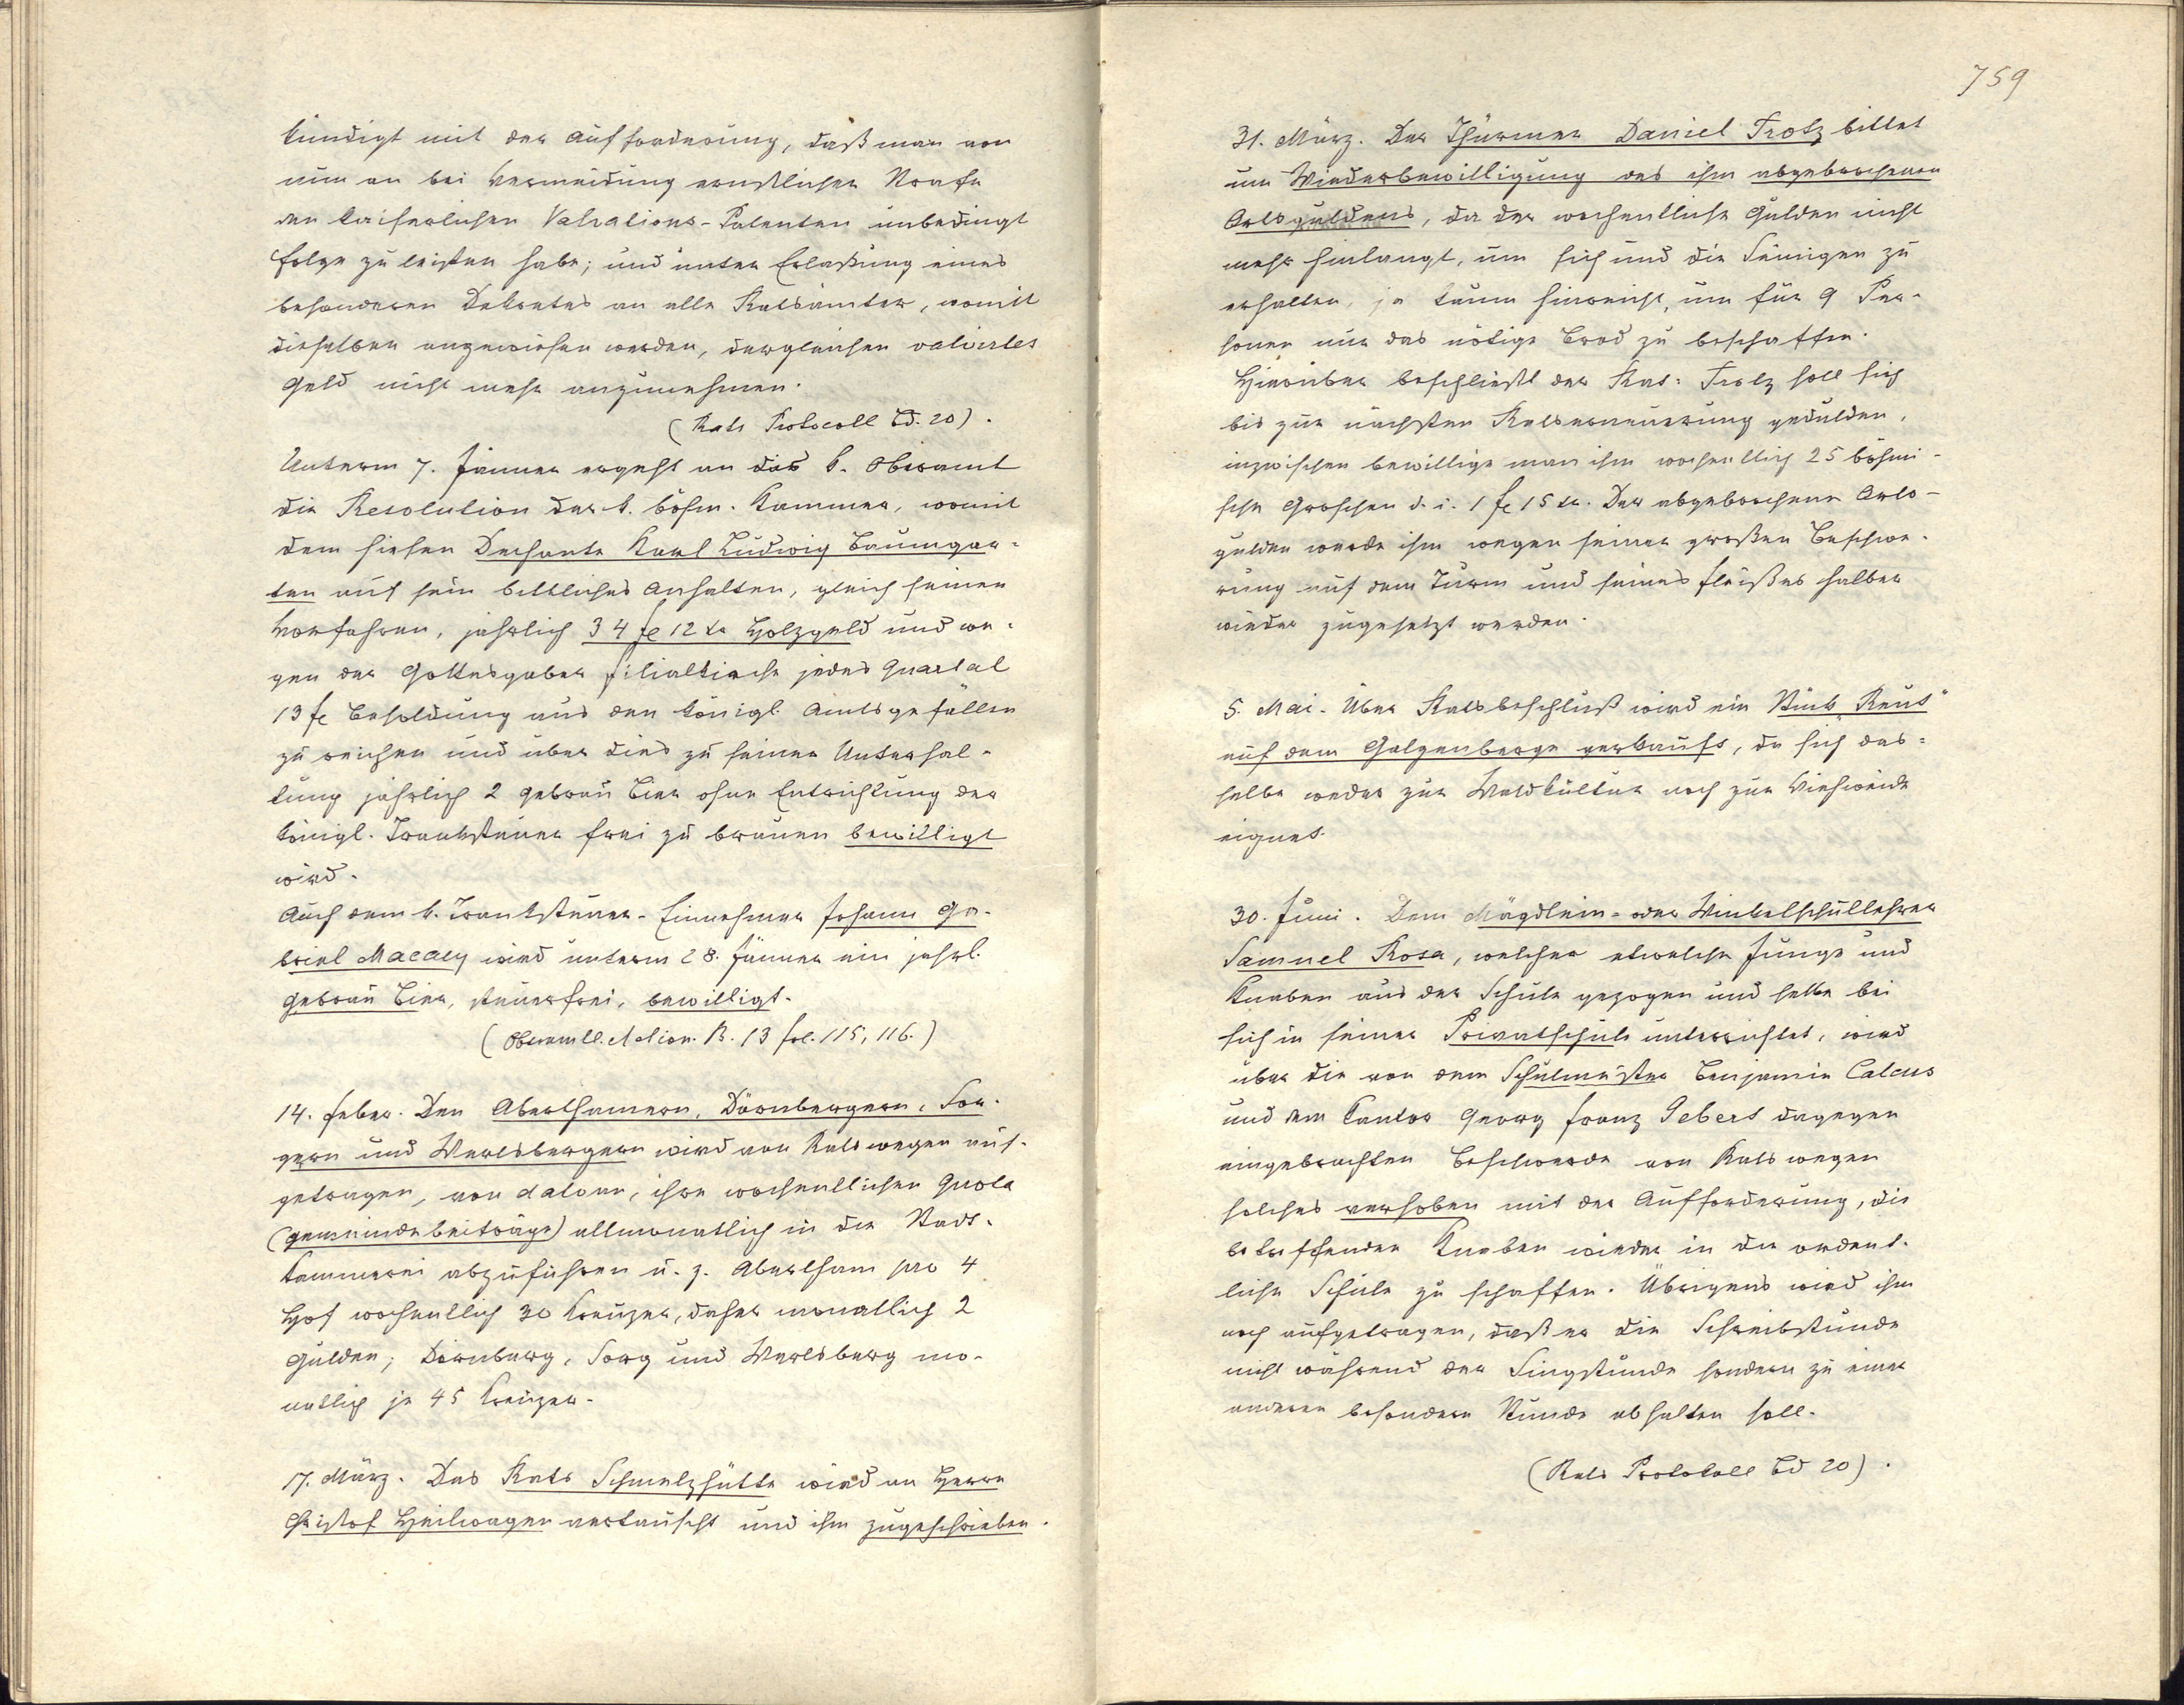 kündigt mit der Aufforderung, daß man von
nun an bei Vermeidung ernstlicher Strafe
den kaiserlichen Valvations-Patenten unbedingt
Folge zu leisten habe; und unter Erlassung eines
besonderen Dekretes an alle Ratsämter, womit
dieselben angewiesen werden, dergleichen valvirtes
Geld nicht mehr anzunehmen.
(Rats Protocoll Bd. 20).
Unterm 7. Jänner ergeht an das k. Oberamt
die Resolution der k. böhm. Kammer, womit
dem hiesen Dechante Karl Ludwig Baumgar-
ten auf sein bittliches Anhalten, gleich seinen
Vorfahren, jährlich 34 fl 12 kr Holzgeld und we-
gen der Gottesgaber Filialkirche jedes Quartal
13 fl Besoldung aus den königl. Amtsgefällen
zu reichen und über dies zu seiner Unterhal-
tung jährlich 2 Gebräu Bier ohne Entrichtung der
königl. Tranksteuer frei zu brauen bewilligt
wird.
Auch dem k. Tranksteuer-Einnehmer Johann Ga-
briel Macasy wird unterm 28. Jänner ein jährl.
Gebräu Bier, steuerfrei, bewilligt.
(Oberamtl. Action. B. 13 fol. 115, 116.)
14. Feber. Den Aberthamern, Dörnbergern, Sor-
gern und Werlsbergern wird von Rats wegen auf-
getragen, von dato an, ihre wochentlichen Quota
(Gemeindebeiträge) allmonatlich in die Stadt-
kammerei abzuführen u. z. Abertham pro 4
Hof wochentlich 30 Kreuzer, daher monatlich 2
Gulden; Dörnberg, Sorg und Werlsberg mo-
natlich je 45 Kreuzer.
17. März. Das Rats Schmelzhütte wird an Herrn
Christof Heilwagen vertauscht und ihm zugeschrieben.
759
31. März. Der Thürmer Daniel Trotz bittet
um Wiederbewilligung des ihm abgebrochenen
Ortsguldens, da der wochentliche Gulden nicht
mehr hinlangt, um sich und die Seinigen zu
erhalten, ja kaum hinreicht, um für 9 Per-
sonen nur das nötige Brod zu beschaffen.
Hierüber beschließt der Rat: Trotz soll sich
bis zur nächsten Ratserneuerung gedulden,
inzwischen bewillige man ihm wochentlich 25 böhmi-
sche Groschen d. i. 1 fl 15 kr. Der abgebrochene Orts-
gulden werde ihm wegen seiner großen Beschwe-
rung auf dem Turm und seines Fleißes halber
wieder zugesetzt werden.
5. Mai. Über Ratsbeschluß wird ein Stück „Reut"
auf dem Galgenberge verkauft, da sich das-
selbe weder zur Waldkultur noch zur Viehweide
eignet.
30. Juni. Dem Mägdlein- oder Winkelschullehrer
Samuel Rosa, welcher etwelche Junge und
Knaben aus der Schule gezogen und selbe bei
sich in seiner Privatschule unterrichtet, wird
über die von dem Schulmeister Benjamin Calcus
und dem Cantor Georg Franz Sebert dagegen
eingebrachten Beschwerde von Rats wegen
solches verhoben mit der Aufforderung, die
betreffenden Knaben wieder in die ordent-
liche Schule zu schaffen. Übrigens wird ihm
noch aufgetragen, daß er die Schreibstunde
nicht während der Singstunde sondern zu einer
anderen besondern Stunde abhalten soll.
(Rats Protokoll Bd 20).